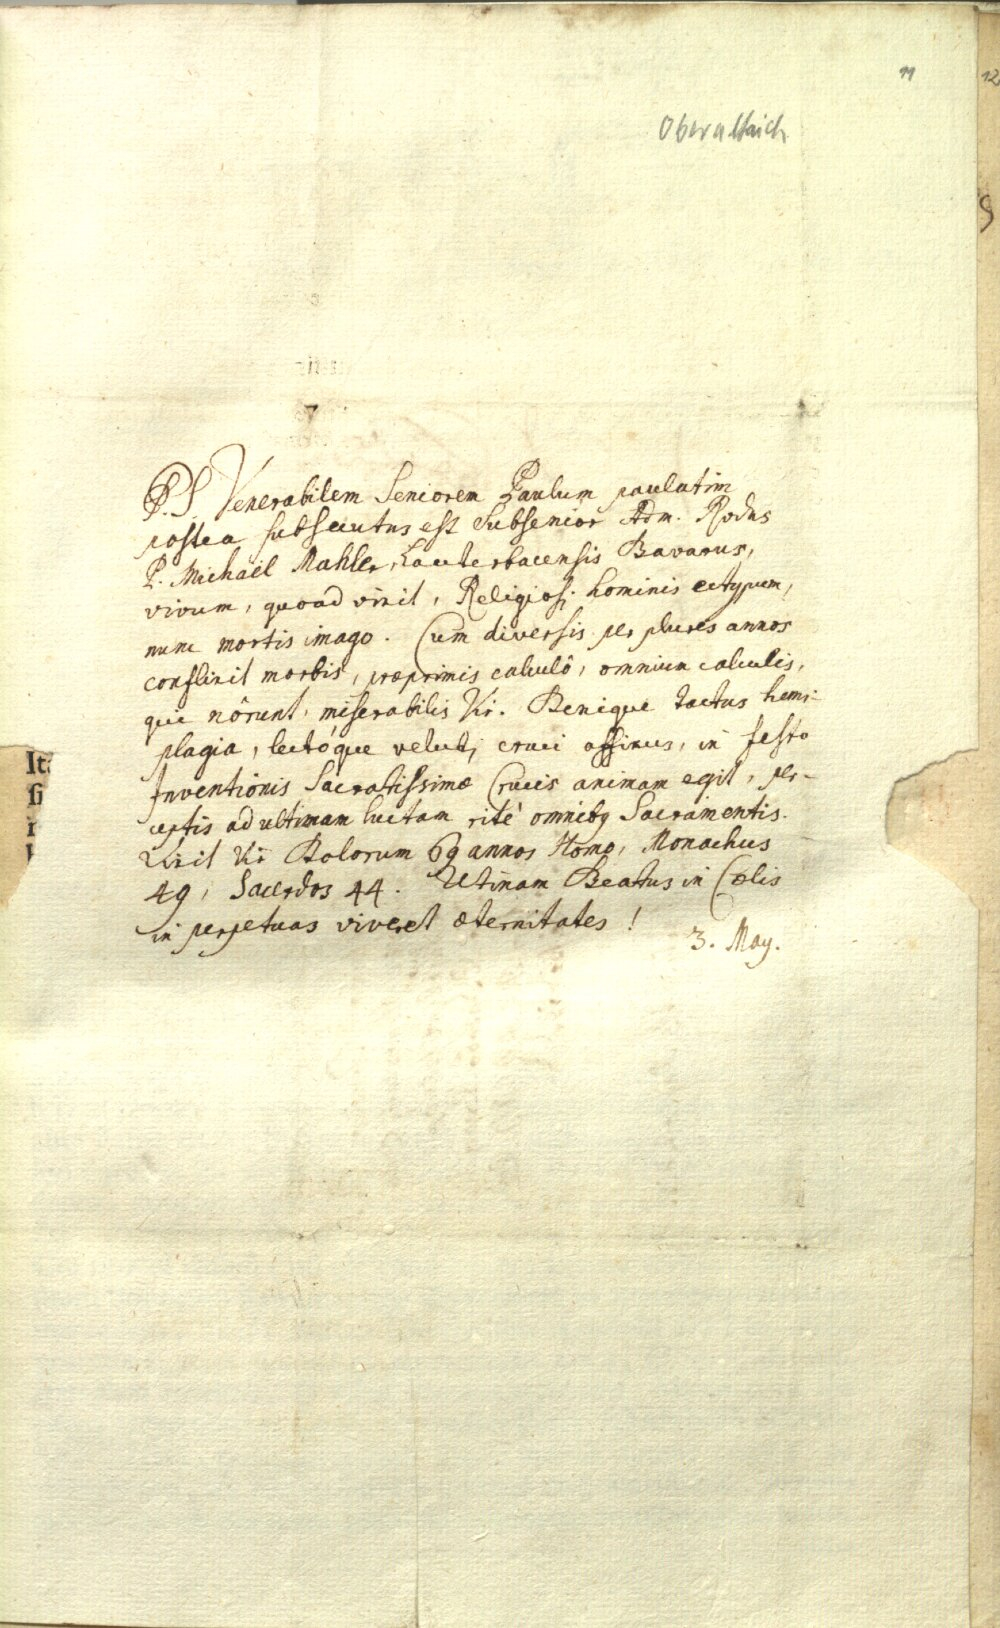 11
12
Oberaltaich
P.S. Venerabilem Seniorem Paulum paulatim
postea subsecutus est Subsenior Adm. Rvdus
P. Michaël Mahler, Lauterbacensis Bavarus,
vivum, quoad vixit, Religiosi hominis ectypum,
nunc mortis imago. Cum diversis per plures annos
conflixit morbis, præprimis calculô, omnium calculis,
qui nôrunt, miserabilis Vir. Denique tactus hemi-
plagia, lectóque velutj cruci affixus, in festo
Inventionis Sacratissimæ Crucis animam egit, per-
ceptis ad ultimam luctam ritè omnibq Sacramentis.
Vixit Vir Dolorum 69 annos Homo, Monachus
49, Sacerdos 44. Utinam Beatus in Cœlis
in perpetuas viveret æternitates!
3. May.
It